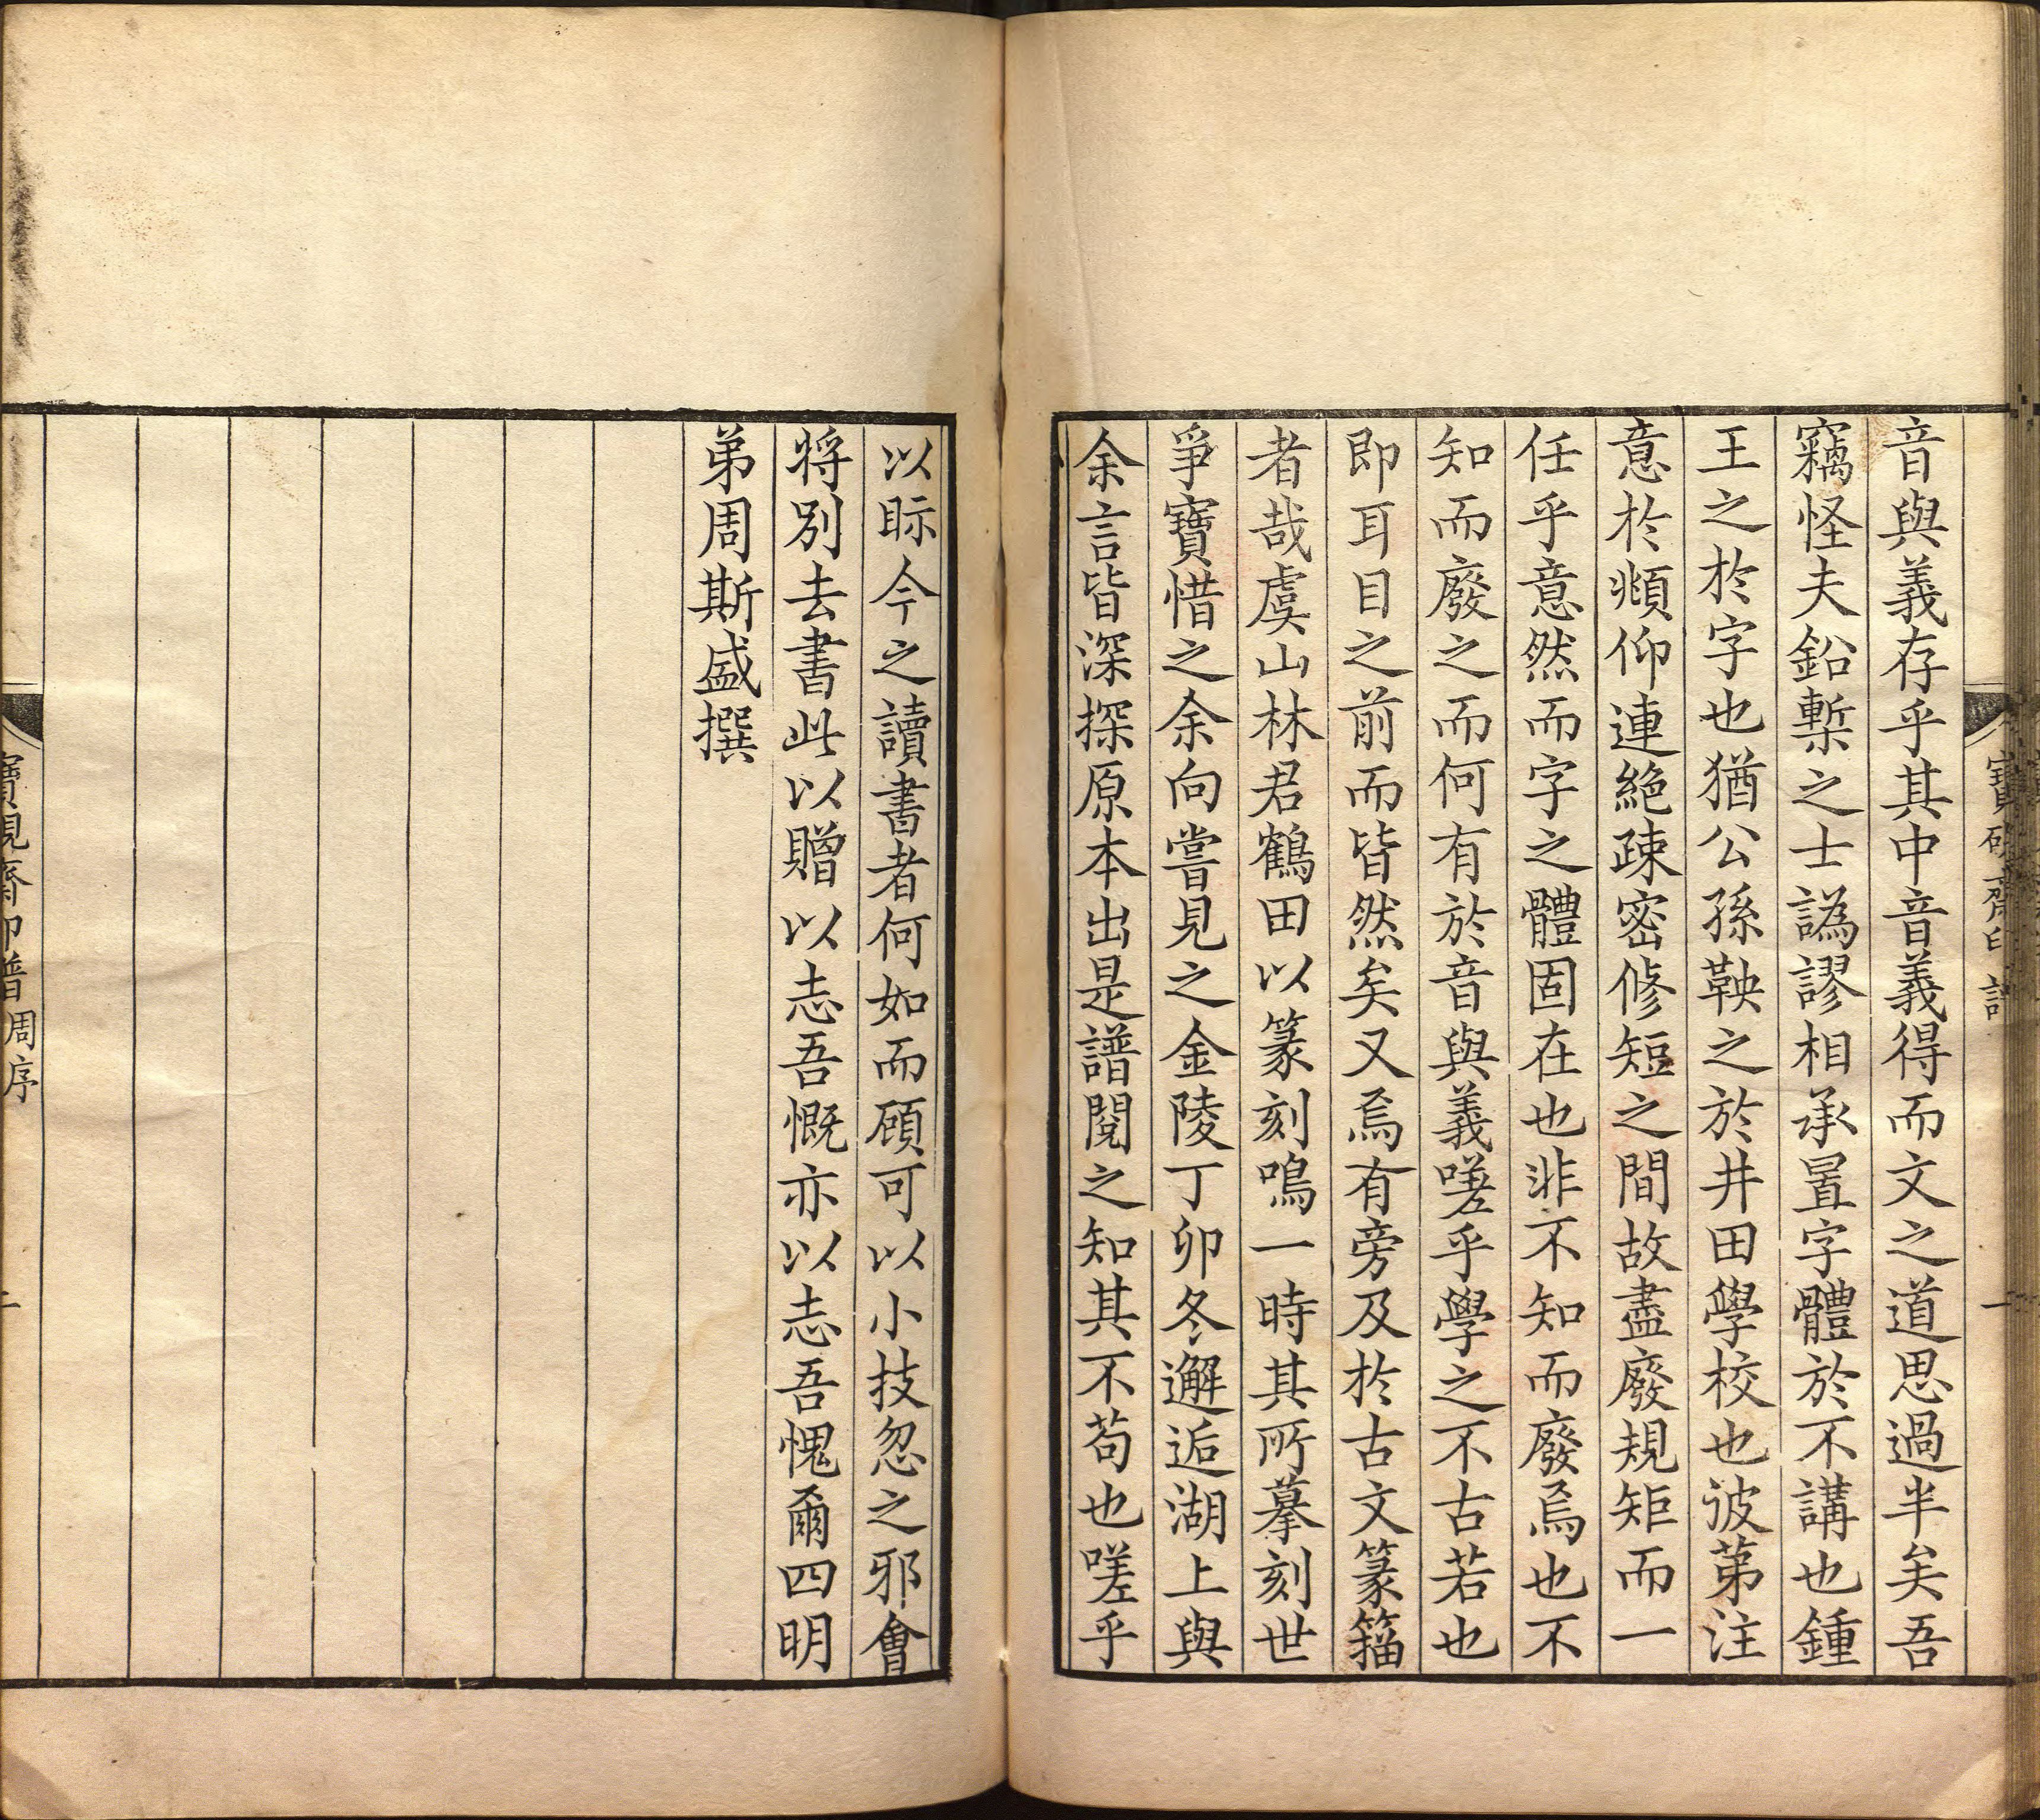 音與義存乎其中音義得而文之道思過半矣吾
竊怪夫鉛槧之士譌謬相承置字體於不講也鍾
王之於字也猶公孫鞅之於井田學校也彼苐注
意於頫仰連絕疎密修短之間故盡廢規矩而一
任乎意然而字之體固在也非不知而廢焉也不
知而廢之而何有於音與義嗟乎學之不古若也
即耳目之前而皆然矣又焉有旁及於古文篆籀
者哉虞山林君鶴田以篆刻鳴一時其所摹刻世
爭寶惜之余向嘗見之金陵丁卯冬邂逅湖上與
余言皆深探原本出是譜閱之知其不苟也嗟乎
寶硯齋印譜
一
以眎今之讀書者何如而顧可以小技忽之邪會
將別去書此以贈以志吾慨亦以志吾愧爾四明
弟周斯盛撰
寶硯齋印譜 周序
二